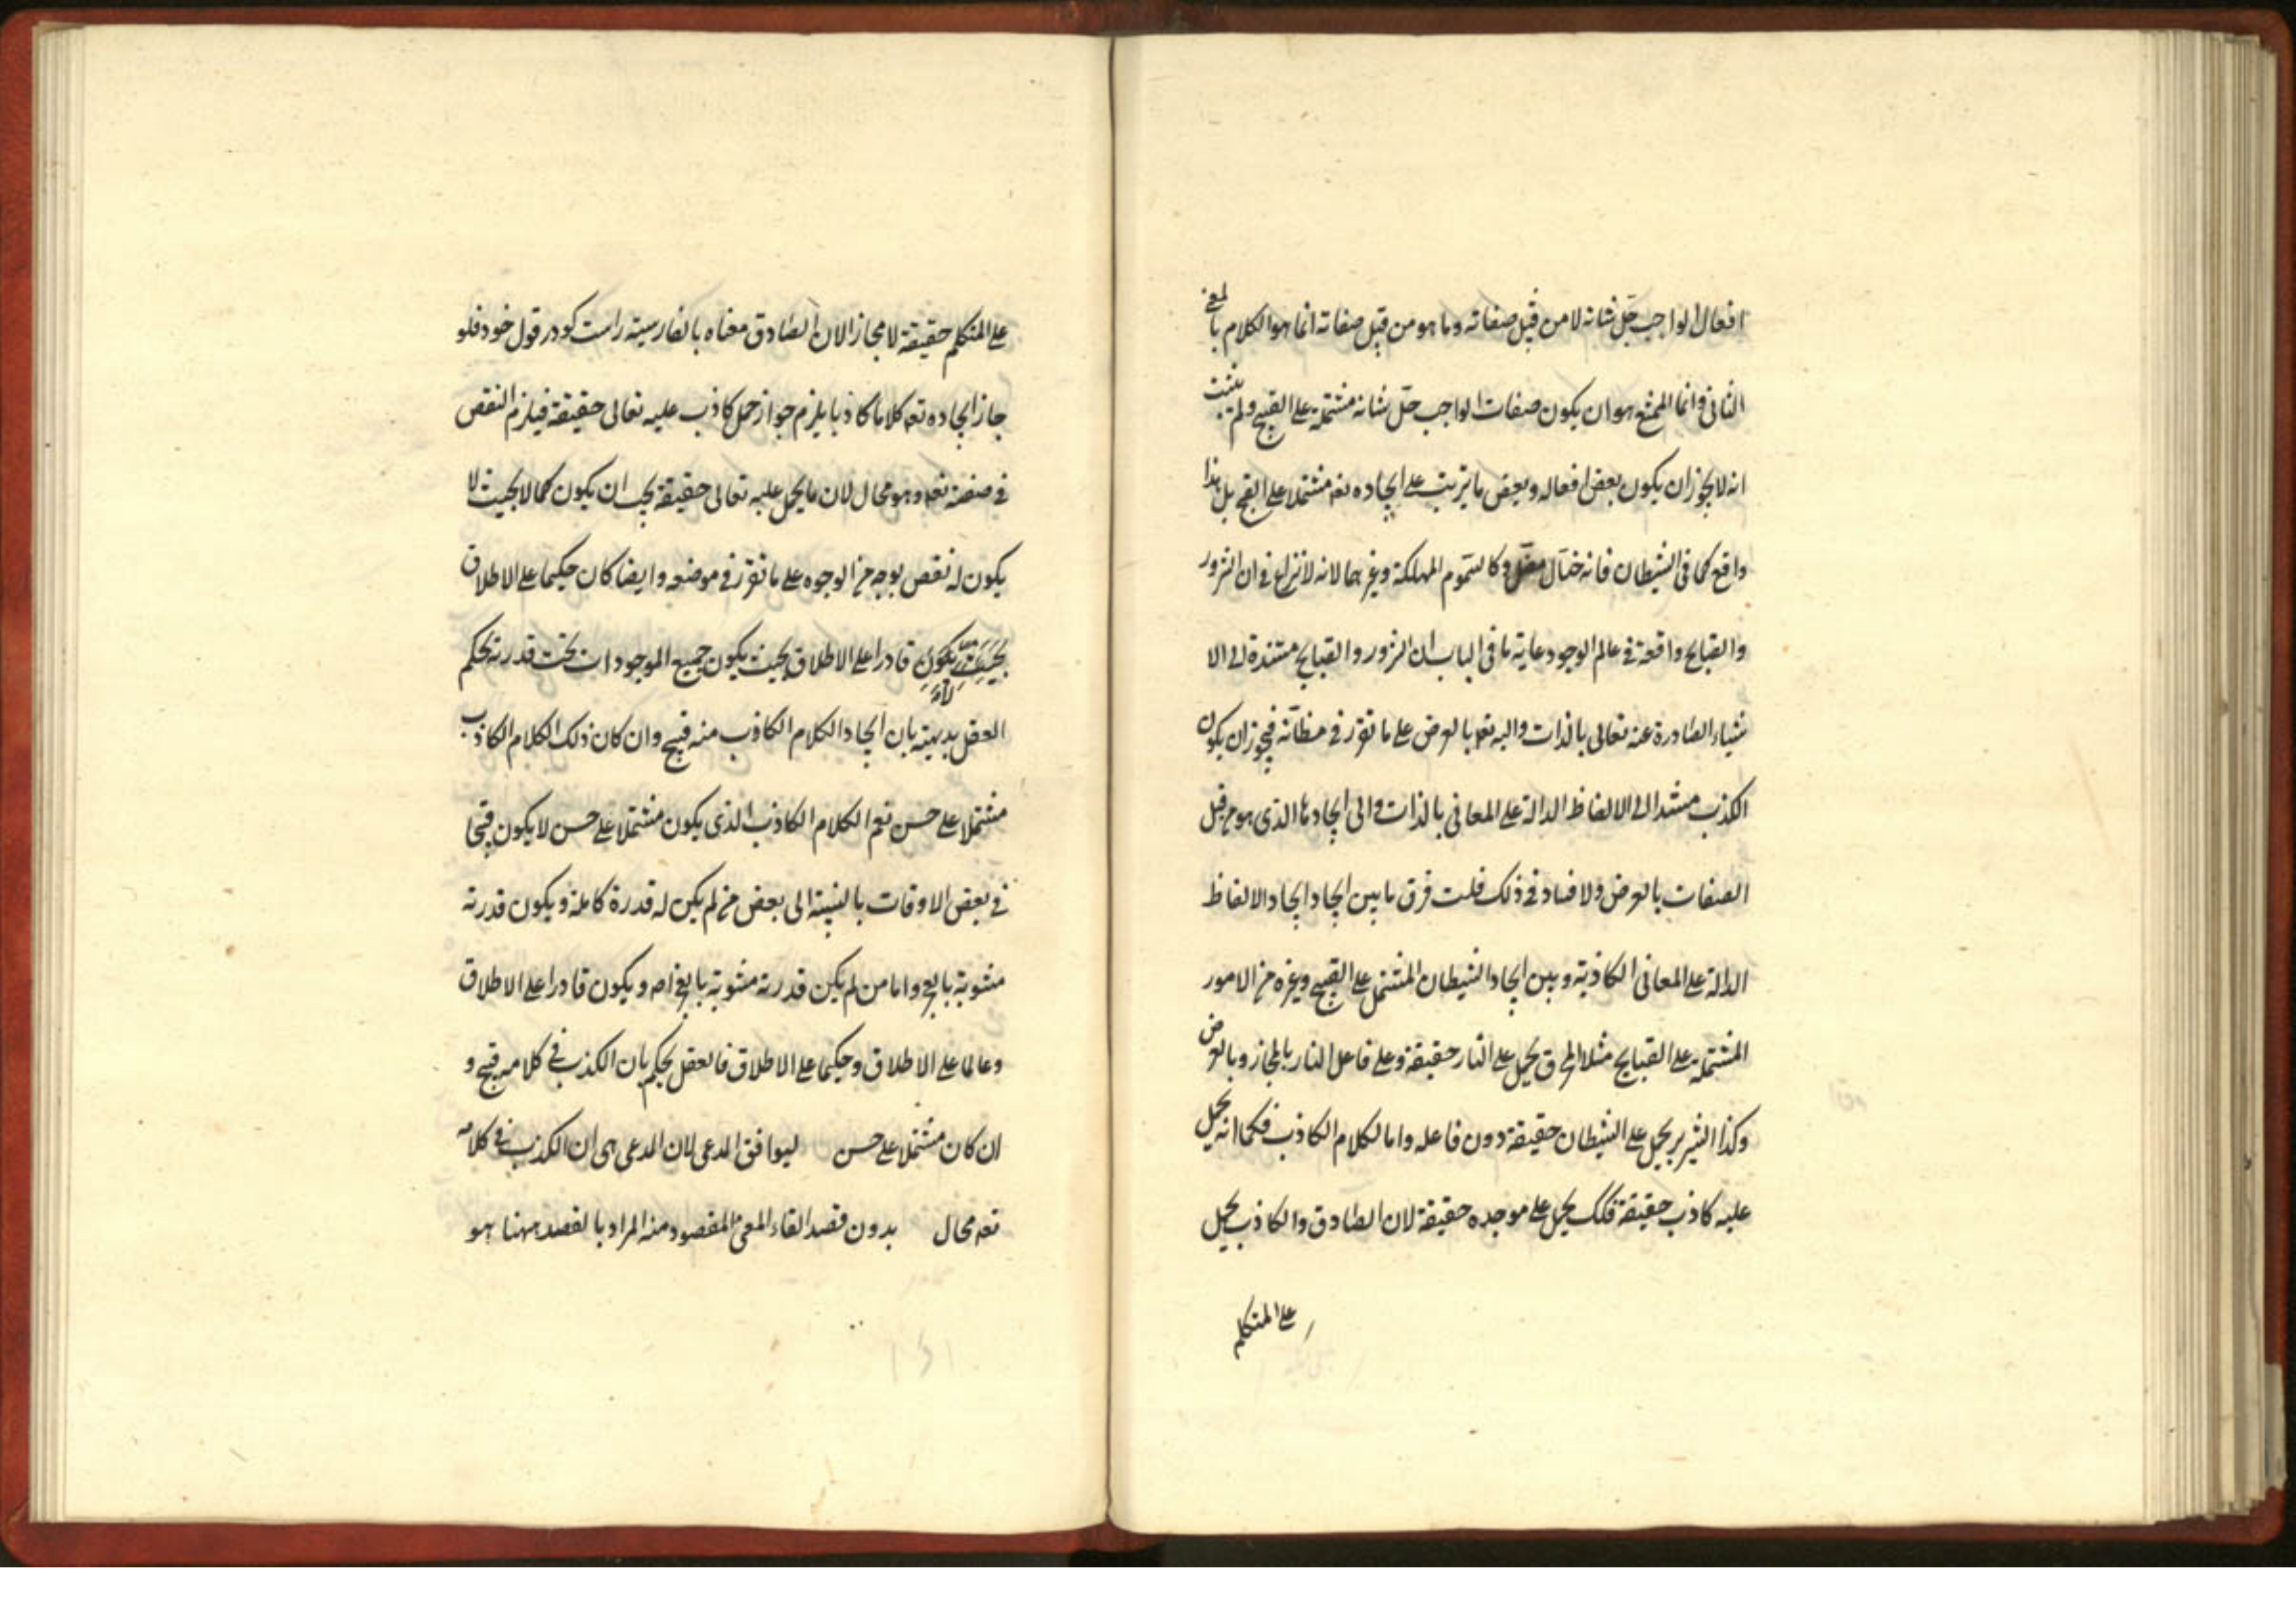 افعال الواجب جل شانه لا من قبل صفاته وما هو من قبل صفاته انما هو الكلام بالمعنى
الثانى وانما الممتنع هو ان يكون صفات الواجب جل شانه مشتملة على القبيح ولم يثبت
انه لا يجوز ان يكون بعض افعاله وبعض ما يترتب على ايجاده تعه مشتملا على القبح بل هذا
واقع كما فى الشيطان فانه ختال مضل وكالسموم المهلكة وغيرهما لانه لا نزاع فى ان الشرور
والقبايح واقعة فى عالم الوجود غاية ما فى الباب ان الشرور والقبايح مستندة الى الا
شياء الصادرة عنه تعالى بالذات واليه تعه بالعرض على ما تقرر فى مظانه فيجوز ان يكون
الكذب مستندا الى الالفاظ الدالة على المعانى بالذات والى ايجادها الذى هو من قبل
الصفات بالعرض ولا فساد فى ذلك قلت فرق ما بين ايجاد ايجاد الالفاظ
الدالة على المعانى الكاذبة وبين ايجاد الشيطان المشتمل على القبيح وغيره من الامور
المشتملة على القبايح مثلا المحرق يحمل على النار حقيقة وعلى فاعل النار بالمجاز وبالعرض
وكذا الشرير يحمل على الشيطان حقيقة دون فاعله واما الكلام الكاذب فكما انه يحمل
عليه كاذب حقيقة فكك يحمل على موجده حقيقة لان الصادق والكاذب يحمل
على المتكلم
على المتكلم حقيقة لا مجازا لان الصادق معناه بالفارسية راست كو در قول خود فلو
جاز ايجاده تعه كلاما كاذبا يلزم جواز حمل كاذب عليه تعالى حقيقة فيلزم النقص
فى صفته تعه وهو محال لان ما يحمل عليه تعالى حقيقة يجب ان يكون كمالا بحيث لا
يكون له نقص بوجه من الوجوه على ما تقرر فى موضعه وايضا كان حكيما على الاطلاق
بحيث يكون قادرا على الاطلاق بحيث يكون جميع الموجودات تحت قدرته يحكم
العقل بديهة بان ايجاد الكلام الكاذب منه قبيح وان كان ذلك الكلام الكاذب
مشتملا على حسن نعم الكلام الكاذب الذى يكون مشتملا على حسن لا يكون قبيحا
فى بعض الاوقات بالنسبة الى بعض من لم يكن له قدرة كاملة ويكون قدرته
مشوبة بالعجز واما من لم يكن قدرته مشوبة بالعجز اصلا ويكون قادرا على الاطلاق
وعالما على الاطلاق وحكيما على الاطلاق فالعقل يحكم بان الكذب فى كلامه قبيح و
ان كان مشتملا على حسن ليوافق المدعى لان المدعى هى ان الكذب فى كلامه
تعه محال بدون قصد القاء المعنى المقصود منه المراد بالقصد ههنا هو